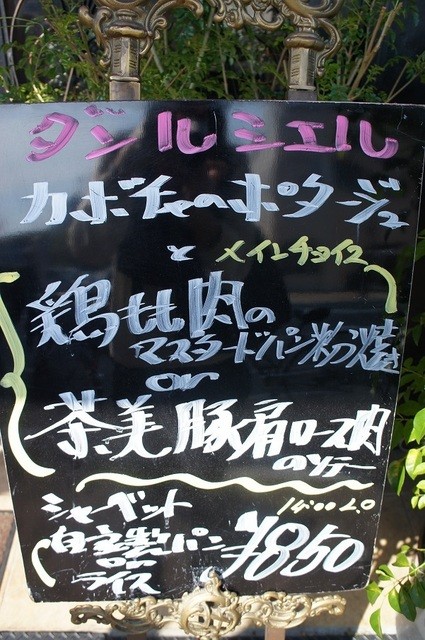 グンルミエル
カボチャのポタージュ
と メインチョイス
鶏もも肉の
マスタードパン粉焼き
or
茶美豚肩ロース肉
のソテー
シャーベット
自家製パン
or
ライス
¥850